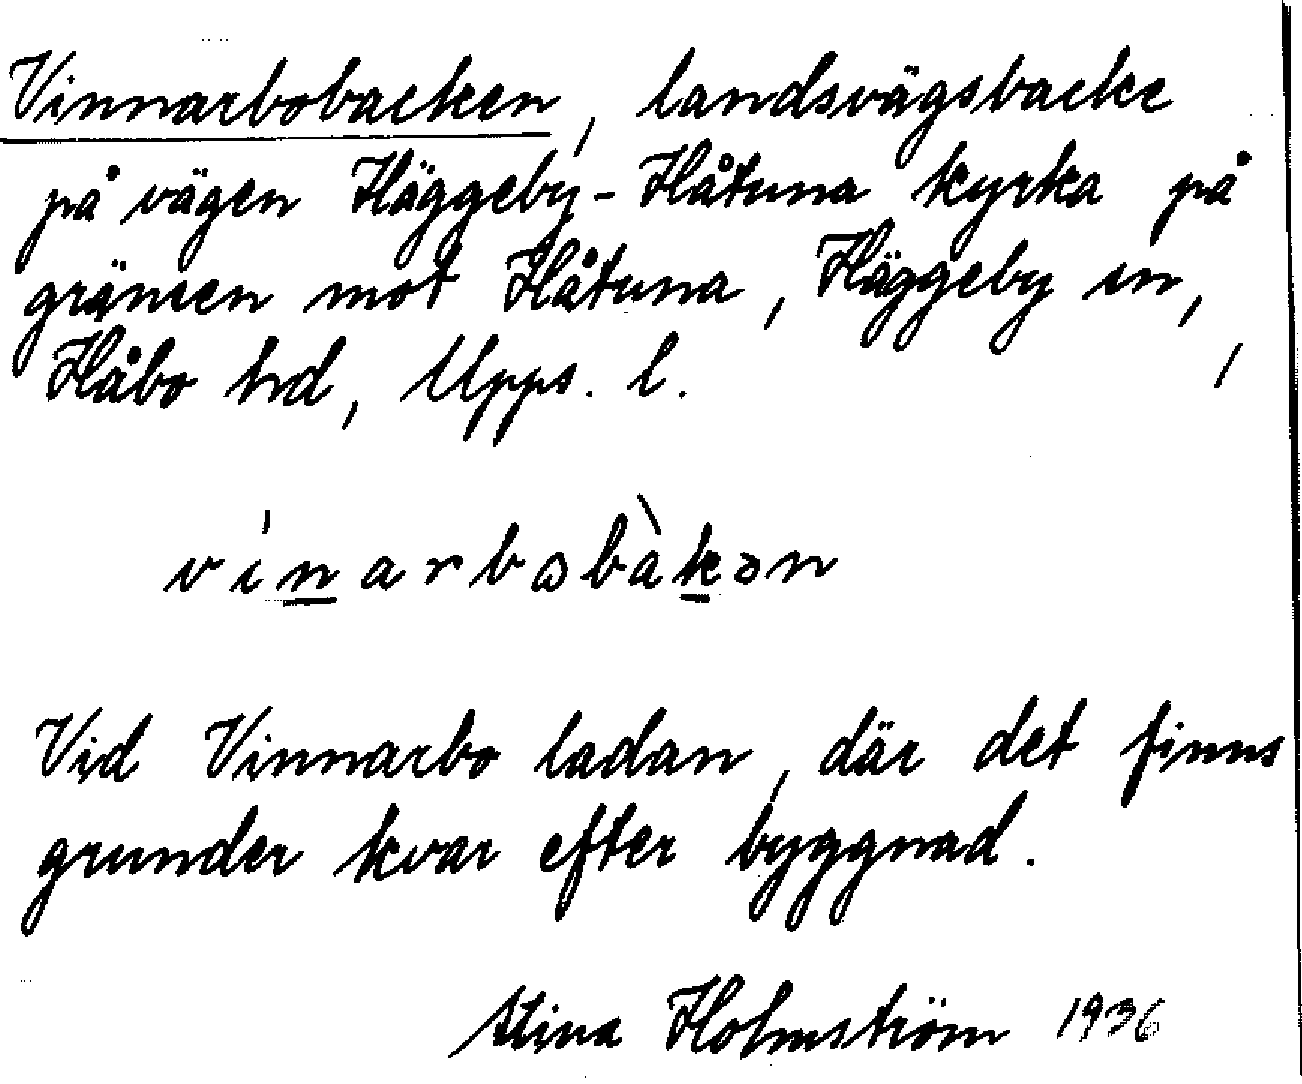 Vinnarbobacken, landsvägsbacke
på vägen Häggeby-Håtuna kyrka på
gränsen mot Håtuna, Häggeby sn,
Håbo hd, Upps. l.
vínarbωbàkən
Vid Vinnarbo ladan, där det finns
grunder kvar efter byggnad.
Stina Holmström 1936